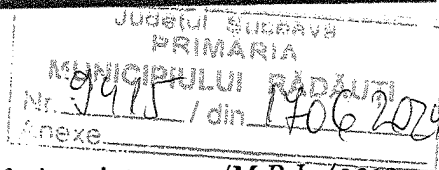 Județul Suceava
PRIMĂRIA
MUNICIPIULUI RĂDĂUȚI
Nr. 9495 / din 17062024
Anexe